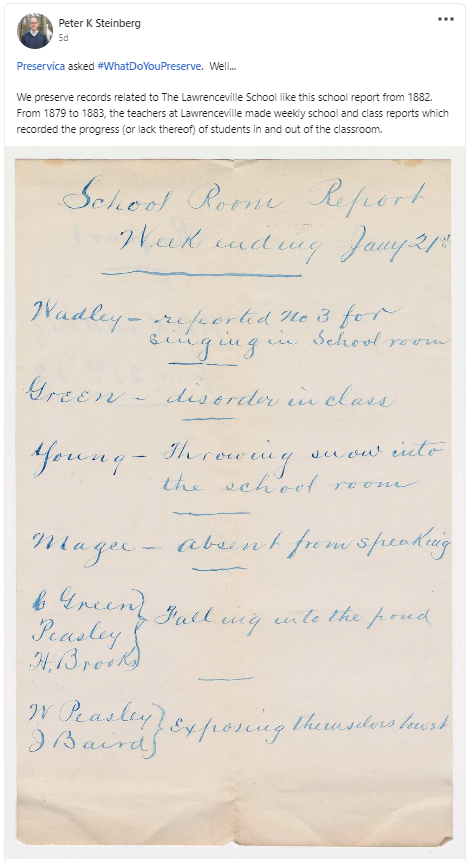 Peter K Steinberg
5d
Preservica asked #WhatDoYouPreserve. Well...
We preserve records related to The Lawrenceville School like this school report from 1882.
From 1879 to 1883, the teachers at Lawrenceville made weekly school and class reports which
recorded the progress (or lack thereof) of students in and out of the classroom.
School Room Report
Week ending Jany 21st
Wadley - reported No 3 for
singing in School room
Green - disorder in class
Young - Throwing snow into
the school room
Magee - absent from speaking
C Green
Peasley
H. Brooks
Falling into the pond
W Peasley
J Baird
Exposing themselves to wet